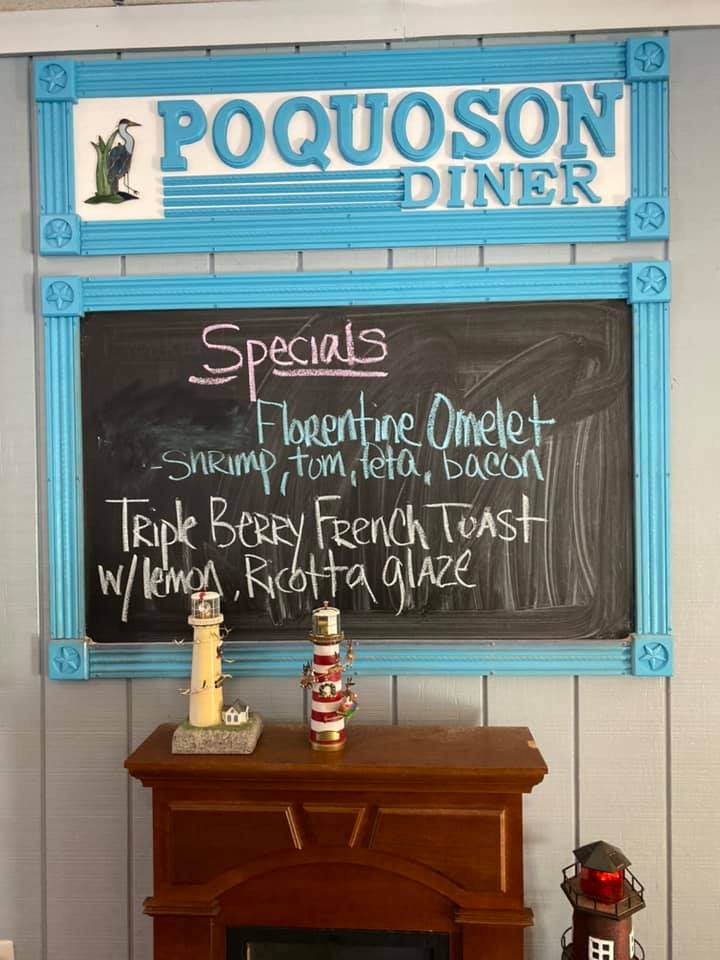 POQUOSON
DINER
Specials
Florentine Omelet
-Shrimp, tom, feta, bacon
Triple Berry French Toast
w/lemon, Ricotta glaze